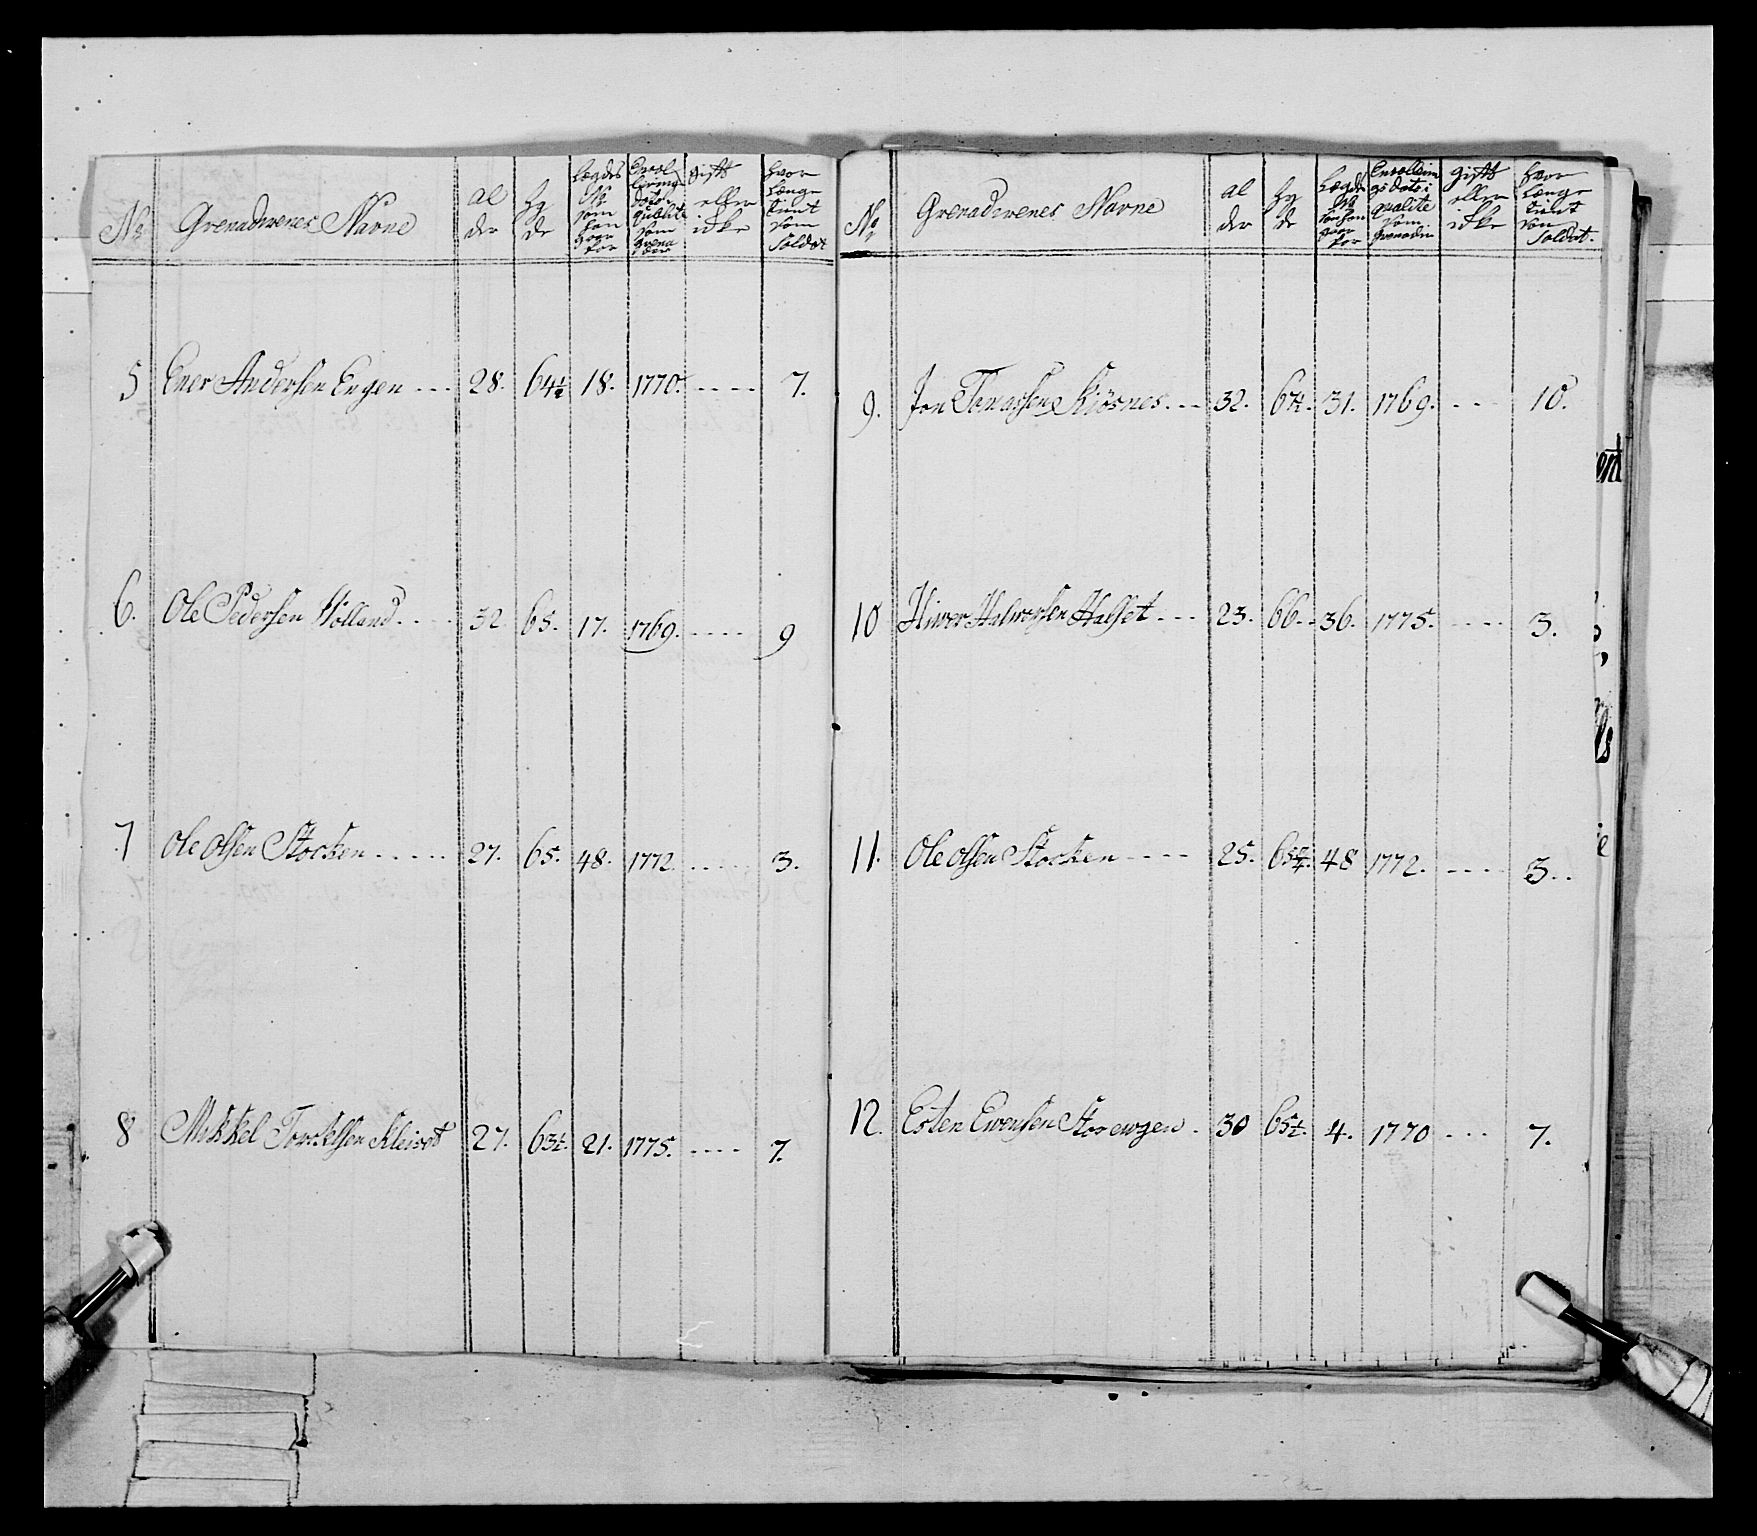 No Grenaderenes Navne al der hy de Lægdes No som han staar for Enrollerings dato i qualite som Grenadeer gift eller ikke hvor længe tient som Soldat
5 Ener Andersen Engen ... 28. 64½ 18. 1770. .... 7.
6. Ole Pedersen Hølland .... 32. 65. 17. 1769. .... 9
7 Ole Olsen Stocken ..... 27. 65. 48. 1772. .... 3.
8 Mikkel Torckelsen 27. 63½. 21. 1775. .... 7.
No Grenaderenes Navne al der hy de Lægdes No som han staar for Enrollerings dato i qualite som Grenadeer gift eller ikke hvor længe tient som Soldat.
9. Jon Tomassen Kiösnes ... 32. 31. 1769. ... 10.
10 Halset ... 23. 66. 36. 1775. .... 3.
11. Ole Olsen Stocken .... 25. 48 1772. .... 3.
12. Esten Ewensen Storewgen. 30 65½. 4. 1770 ... 7.